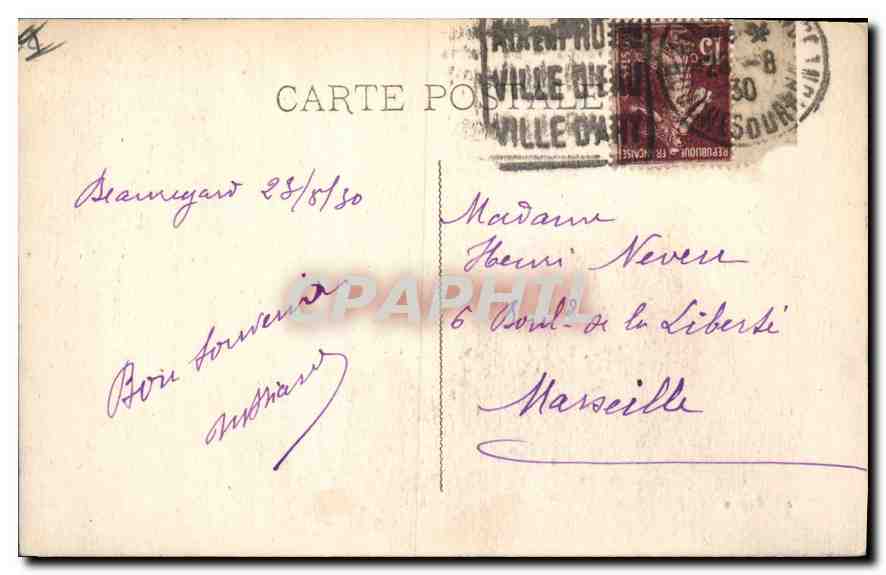 CARTE POSTALE
AIX EN PROV
VILLE D'EAU
VILLE D'ART
15
-8
30
REPUBLIQUE FRANCAISE
Beauregard 23/8/30
Bon Souvenir
Madame
Henri Neveu
6 Boul.d de la Liberté
Marseille
CPAPHIL